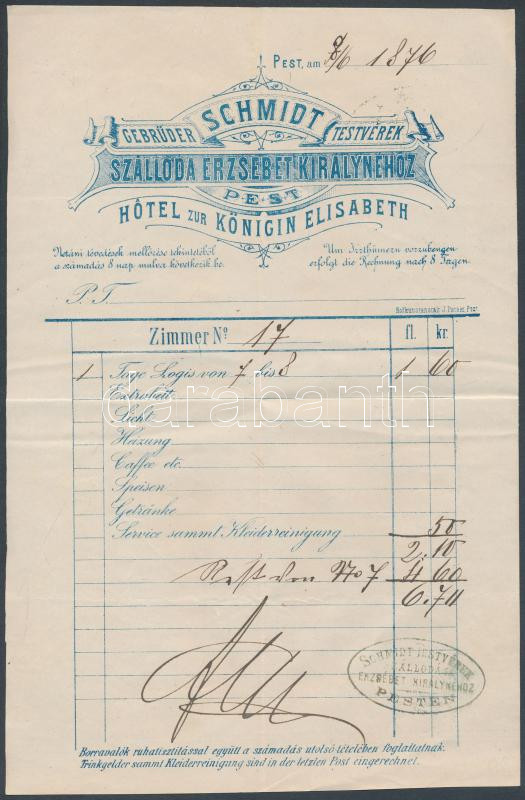 PEST, am 8/6 1876
GEBRÜDER SCHMIDT TESTVÉREK
SZÁLLODA ERZSÉBET KIRÁLYNÉHOZ
PEST
HÔTEL ZUR KÖNIGIN ELISABETH
Netáni tévedések mellőzése tekintetéből
a számadás 8 nap mulva következik be.
Um Irrthümern vorzubengen
erfolgt die Rechnung nach 8 Tagen.
P. T.
Zimmer No. 17 fl. kr.
1 Tage Logis von 7 bis 8 1 60
Extrabett
Licht
Heizung
Caffee etc.
Speisen
Getränke
Service sammt Kleiderreinigung 50
2.10
Rest von No 7 4 60
6.70
darabanth
SCHMIDT TESTVÉREK
SZÁLLODA
ERZSÉBET KIRÁLYNÉHOZ
PESTEN
Borravalók ruhatisztitással együtt a számadás utolsó tételében foglaltatnak.
Trinkgelder sammt Kleiderreinigung sind in der letzten Post eingerechnet.